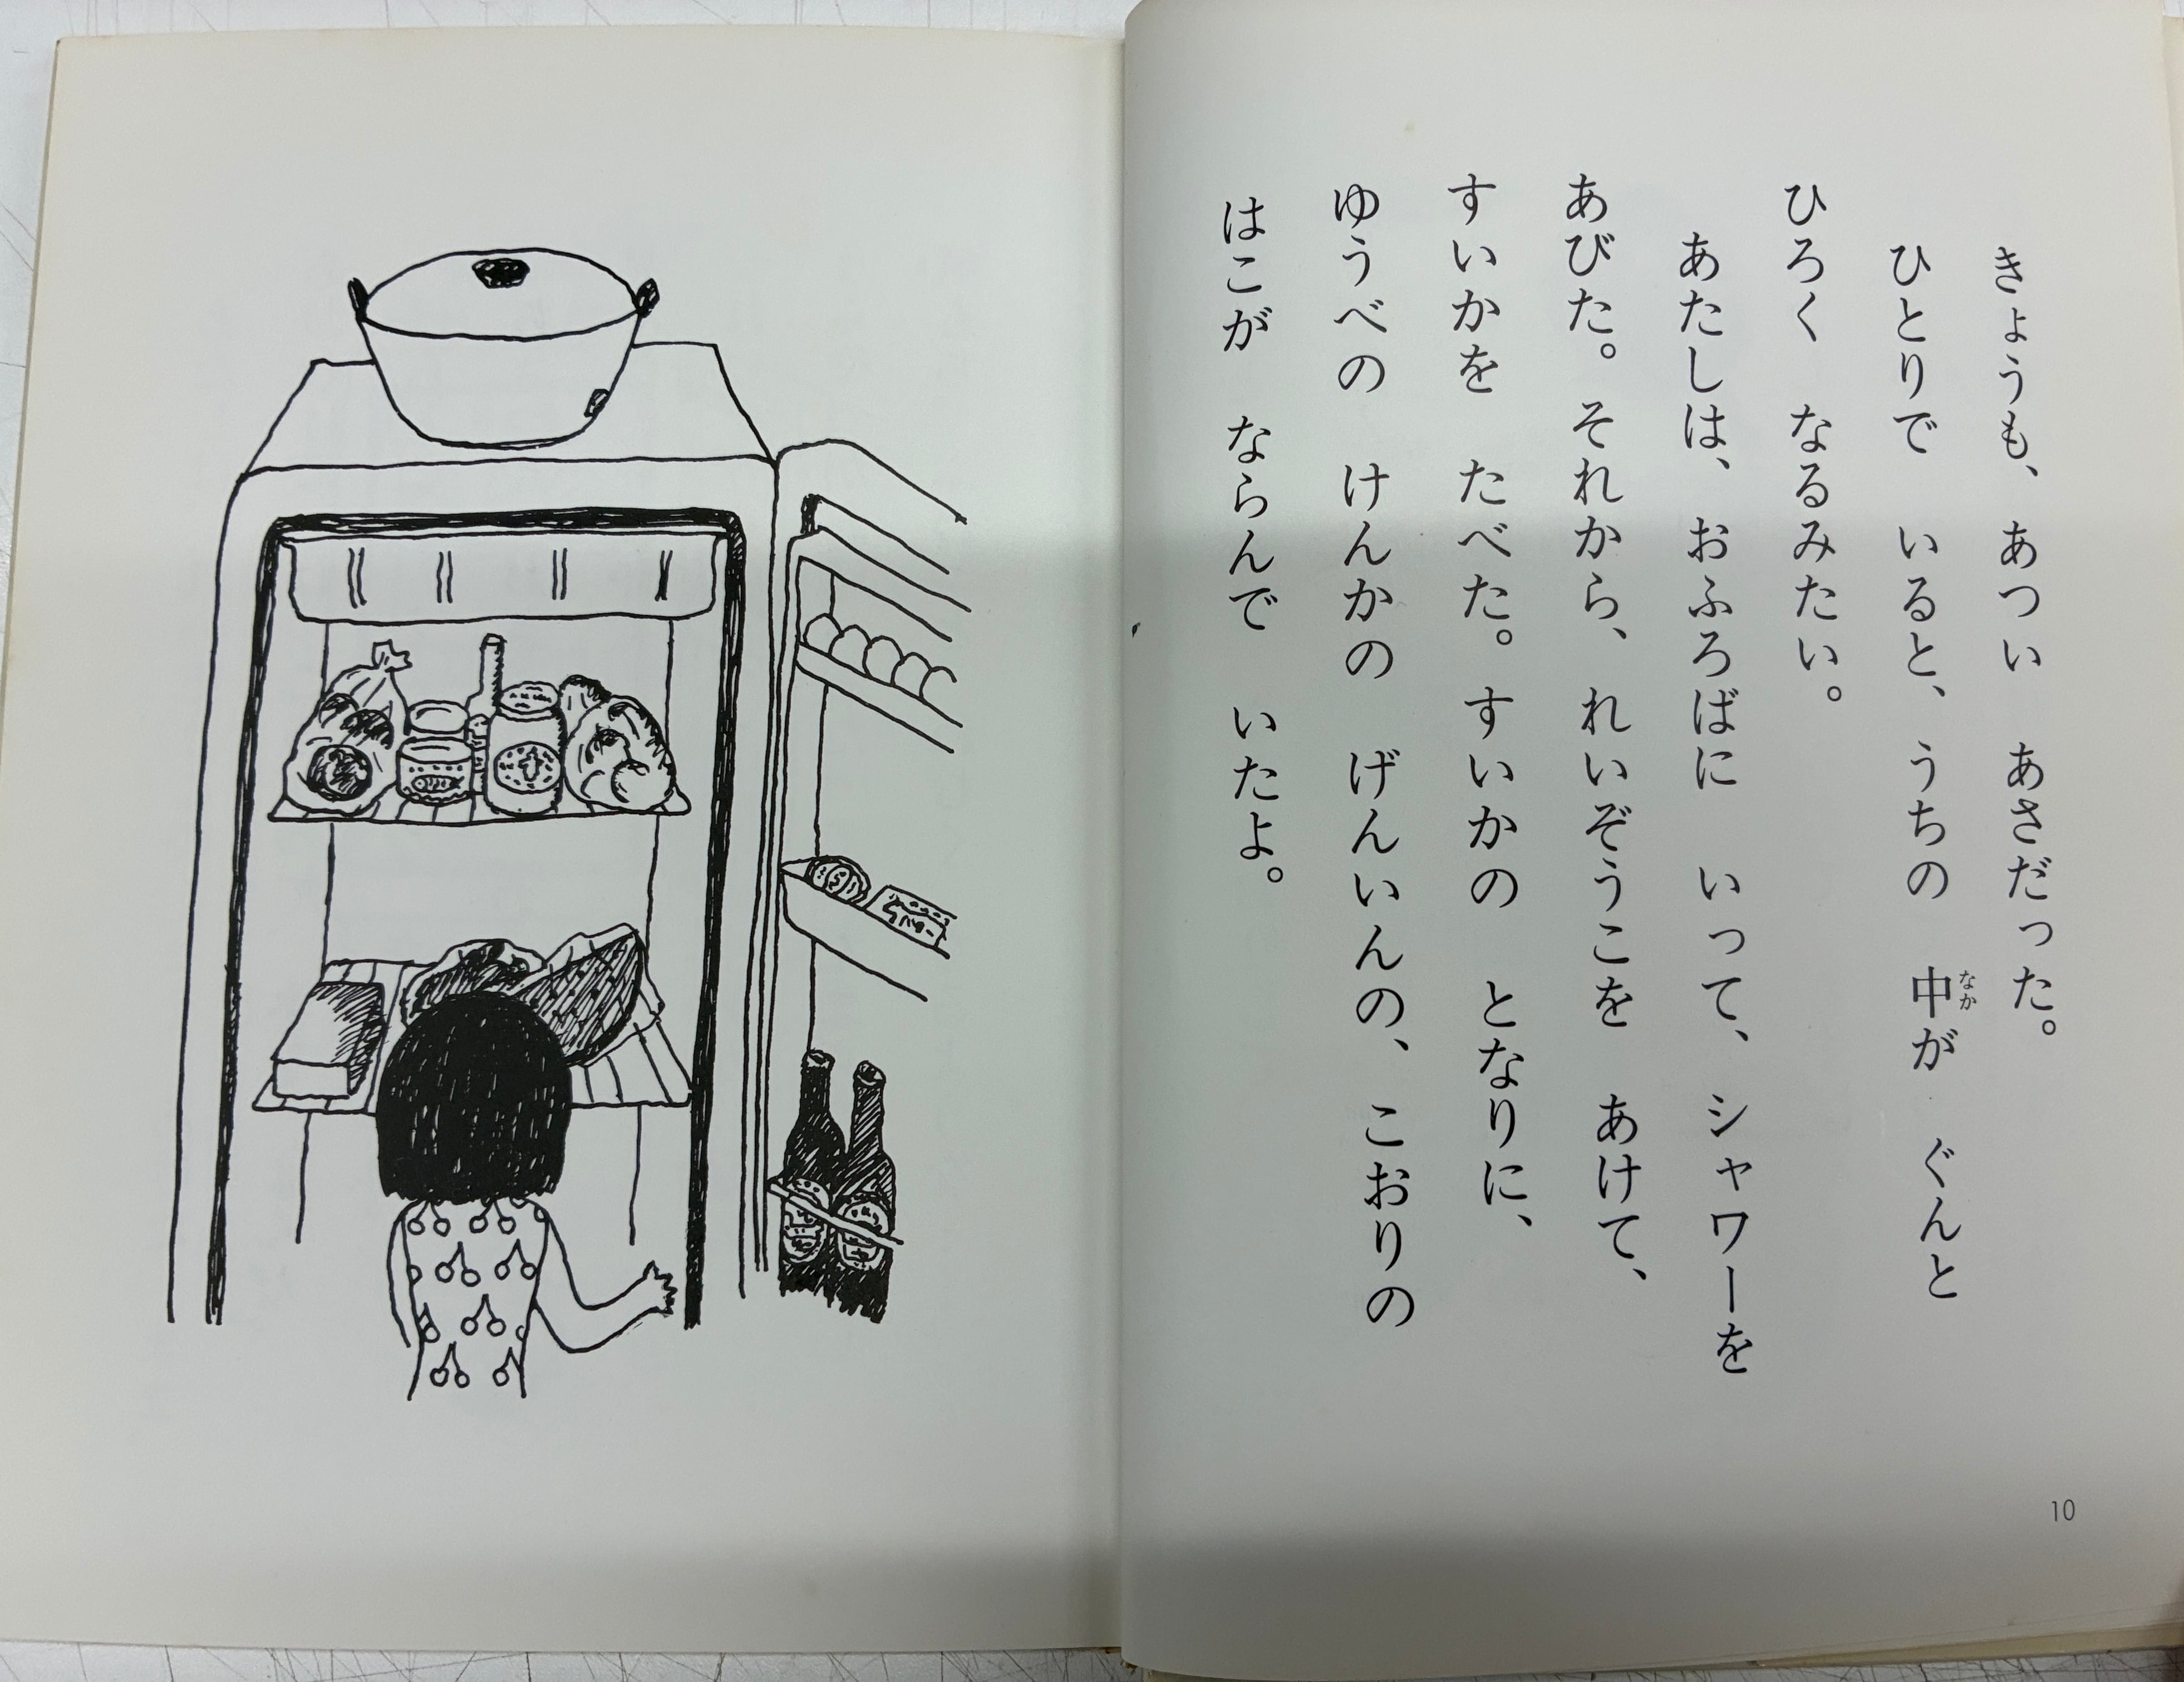 きょうも、あつい　あさだった。
ひとりで　いると、うちの　中が　ぐんと
なか
ひろく　なるみたい。
あたしは、おふろばに　いって、シャワーを
あびた。それから、れいぞうこを　あけて、
すいかを　たべた。すいかの　となりに、
ゆうべの　けんかの　げんいんの、こおりの
はこが　ならんで　いたよ。
10
バター